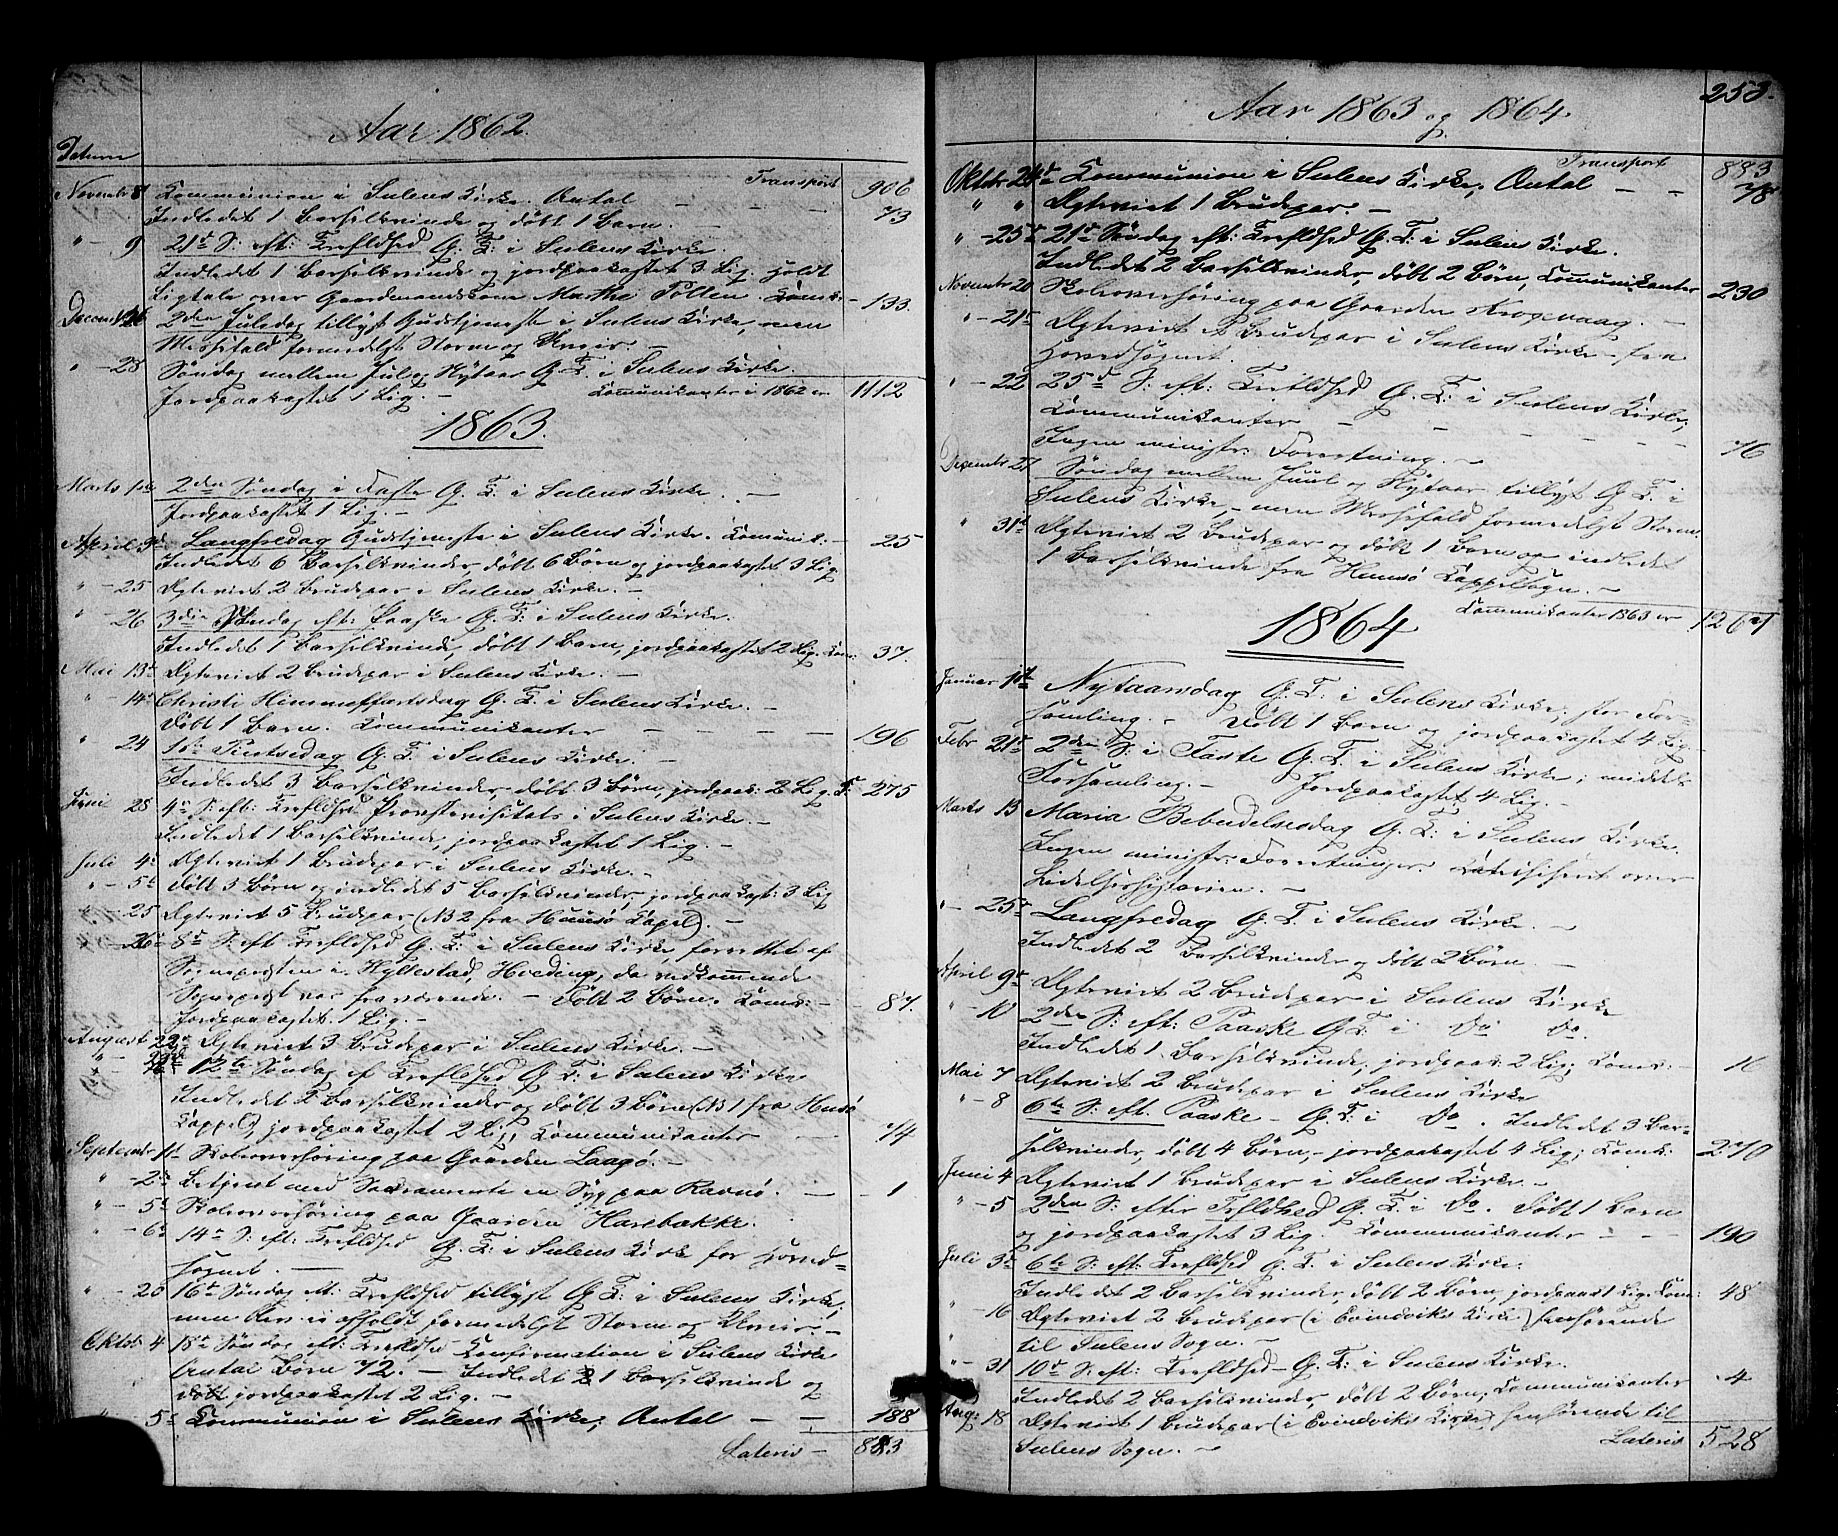 Aar 1862.
Datum
Transport 906
Novembr 8 Kommunion i Sulens Kirke. Antal — — — 73
Indledet 1 Barselkvinde og döbt 1 Barn. —
" - 9 21d S: eft: Trefldhed G. T: i Sulens Kirke
Indledet 1 Barselkvinde og jordpaakastet 3 Lig. Holdt
Ligtale over Gaardmandskone Marthe Pollen. Komk: — 133.
Decembr 26 2den Juledag tillyst Gudstjeneste i Sulens Kirke, men
Messefald formedelst Storm og Uveir. —
" - 28 Söndag mellem Jul og Nytaar G. T. i Sulens Kirke.
Jordpaakastet 1 Lig. — Communikanter i 1862 er 1112
1863.
Marts 1ste 2den Söndag i Faste G. T. i Sulens Kirke. —
Jordpaakastet 1 Lig. —
April 3d Langfredag Gudstjeneste i Sulens Kirke. Komunik: — 25
Indledet 6 Barselkvinder, döbt 6 Börn og jordpaakastet 3 Lig
" - 25 Ægteviet 2 Brudepar i Sulens Kirke. —
" - 26 3die Söndag eft: Paaske G. T: i Sulens Kirke.
Indledet 1 Barselkvinde, döbt 1 Barn, jordpaakastet 2 Lig. Kom: 37.
Mai 13d Ægteviet 2 Brudepar i Sulens Kirke. —
" - 14d Christi Himmelfartsdag G. T: i Sulens Kirke. —
Döbt 1 Barn. Kommunikanter — — — — 196
" 24 1ste Pintsedag G. T: i Sulens Kirke. —
Indledet 3 Barselkvinder döbt 3 Börn, jordpaak: 2 Lig. 275
Juni 28 4d S: eft: Trefldhed Provstevisitats i Sulens Kirke. —
Indledet 1 Barselkvinde, jordpaakastet 1 Lig. —
Juli 4d Ægteviet 1 Brudepar i Sulens Kirke. —
" - 5d Döbt 3 Börn og indledet 5 Barselkvinder, jordpaakast: 3 Lig
" 25 Ægteviet 5 Brudepar, (NB 2 fra Huusö Capel). —
- 26d 8d S: eft Trefldhed G. T: i Sulens Kirke, forrettet af
Sognepresten i Hyllestad, Hveding, da vedkommende
Sognepræst var fraværende. — Döbt 2 Börn. Komk: — 87.
Jordpaakastet 1 Lig. —
August 22d Ægteviet 3 Brudepar i Sulens Kirke. —
12te Söndag ef Trefldhed G. T: i Sulens Kirke
Indledet 2 Barselkvinder og döbt 3 Börn (NB 1 fra Husö
Cappel), jordpaakastet 2 Lig; Kommunikanter — 74
Septembr 1ste Skoleoverhöring paa Gaarden Laagö. —
" - 2d Betjent med Sacramente en Syg paa Ravnö. — — 1
" - 5d Skoleoverhöring paa Gaarden Harebakke.
" - 6d 14d S: eft: Trefldhed G. T: i Sulens Kirke for Hoved-
sognet. —
" - 20 16d Söndag eft: Trefldhed tillyst G. T: i Sulens Kirke,
men den ei afholdt formedelst Storm og Uveir. —
Oktobr 4 18d Söndag eft: Trefldhed Confirmation i Sulens Kirke
Antal Börn 72. — Indledet 1 Barselkvinde og
jordpaakastet 2 Lig. —
5d Communion i Sulens Kirke; Antal — — 188
Lateris — 883
253.
Aar 1863 og 1864.
Transport 883
Oktobr 24d Communion i Sulens Kirke; Antal — — 78
" " Ægteviet 1 Brudepar. —
" - 25d 21d Söndag eft: Trefldhed G. T: i Sulens Kirke.
Indledet 2 Barselkvinder, döbt 2 Börn, Communikanter 230
Novembr 20 Skoleoverhöring paa Gaarden Krogevaag. —
" - 21d Ægteviet Brudepar i Sulens Kirke — fra
Hovedsognet.
" - 22 25d S: eft: Trefldhed G. T: i Sulens Kirke,
Communikanter — — — — — — 76
Ingen ministr: Forretning. —
Decembr 27 Söndag mellem Juul og Nytaar tillyst G. T: i
Sulens Kirke, — men Messefald formedelst Storm.
" 31d Ægteviet 2 Brudepar og döbt 1 Barn og indledet
1 Barselkvinde fra Huusö Cappelsogn. —
Communikanter 1863 er 1267
1864
Januar 1ste Nytaarsdag G. T: i Sulens Kirke; stor For-
samling. — Döbt 1 Barn og jordpaakastet 4 Lig. —
Febr 21d 2den S: i Faste G. T: i Sulens Kirke; middels
Forsamling. — Jordpaakastet 4 Lig. —
Marts 13 Maria Bebudelsesdag G. T: i Sulens Kirke.
Ingen ministr: Forretninger. Katechiseret over
Lidelseshistorien. —
" - 25d Langfredag G. T: i Sulens Kirke. —
Indledet 2 Barselkvinder og döbt 2 Börn. —
April 9d Ægteviet 2 Brudepar i Sulens Kirke
" - 10 2den S: eft: Paaske G. T: i Do Do.
Indledet 1 Barselkvinde, jordpaak: 2 Lig; Komk: — 16
Mai 7 Ægteviet 2 Brudepar i Sulens Kirke
" - 8 6te S: eft. Paaske — G. T: i Do. Indledet 3 Bar-
selkvinder, döbt 4 Börn, — jordpaakastet 4 Lig; Komk: 270
Juni 4 Ægteviet 1 Brudepar i Sulens Kirke. —
" - 5 2den S: efter Trefldhed G. T: i Do. Döbt 1 Barn
og jordpaakastet 3 Lig. Communikanter — — — 190
Juli 3d 6te S: eft: Trefldhed G. T: i Sulens Kirke.
Indledet 2 Barselkvinder, döbt 2 Börn, jordpaak 1 Lig. Kom: 48
" 16 Ægteviet 2 Brudepar (i Evindviks Kirke) henhörende
til Sulens Sogn. —
" - 31 10d S: eft: Trefldhed — G. T: i Sulens Kirke.
Indledet 2 Barselkvinder, döbt 2 Börn; Communikanter 4
Aug: 18 Ægteviet 1 Brudepar (i Evindviks Kirke) henhörende til
Sulens Sogn. — Lateris 528